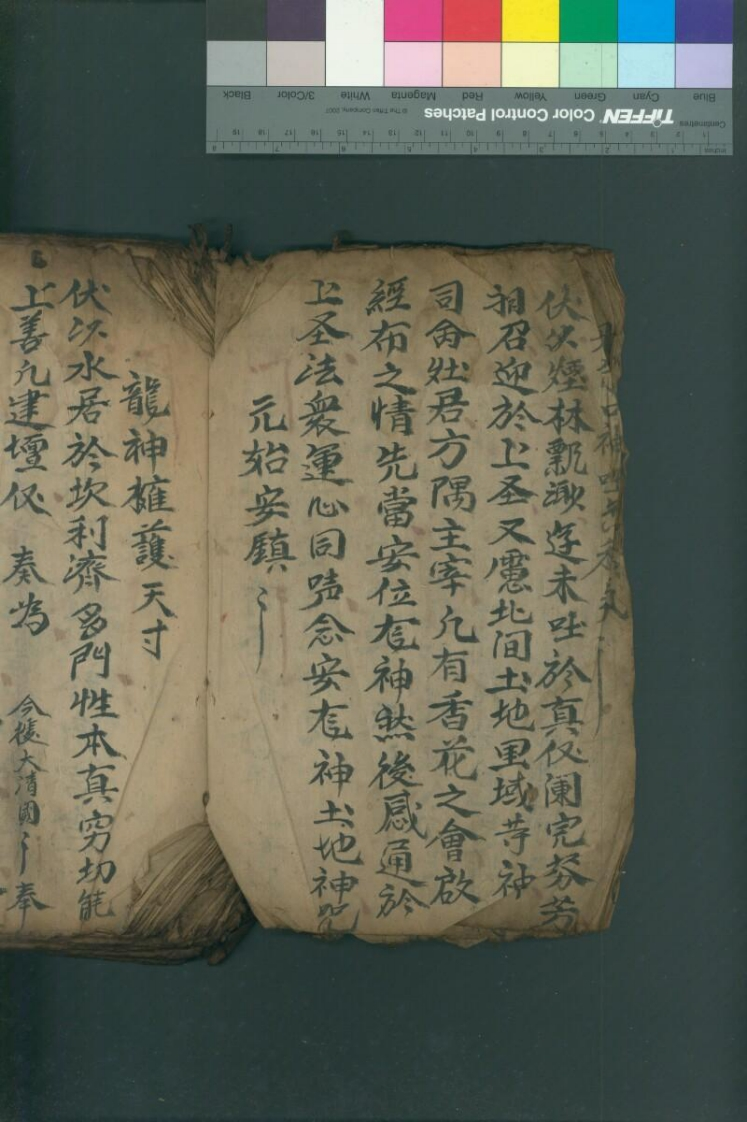 口神咒
伏以煙林飄渺逆未吐於真仪闌完芬芳
招召迎於上圣又慮此间土地里域䓁神
司命灶君方隅主宰凡有香花之會啟
經布之情先當安位㐻神然後感通於
上圣法衆運心同声念安㐻神土地神咒
元始安鎮
龍神擁護天寸
伏以水居於坎利濟多門性本真穷切能
上善凡建壇仪 奏為 今㨿大清國 奉
Blue Cyan Green Yellow Red Magenta White 3/Color Black
TIFFEN Color Control Patches
© The Tiffen Company, 2007
Centimetres
Inches